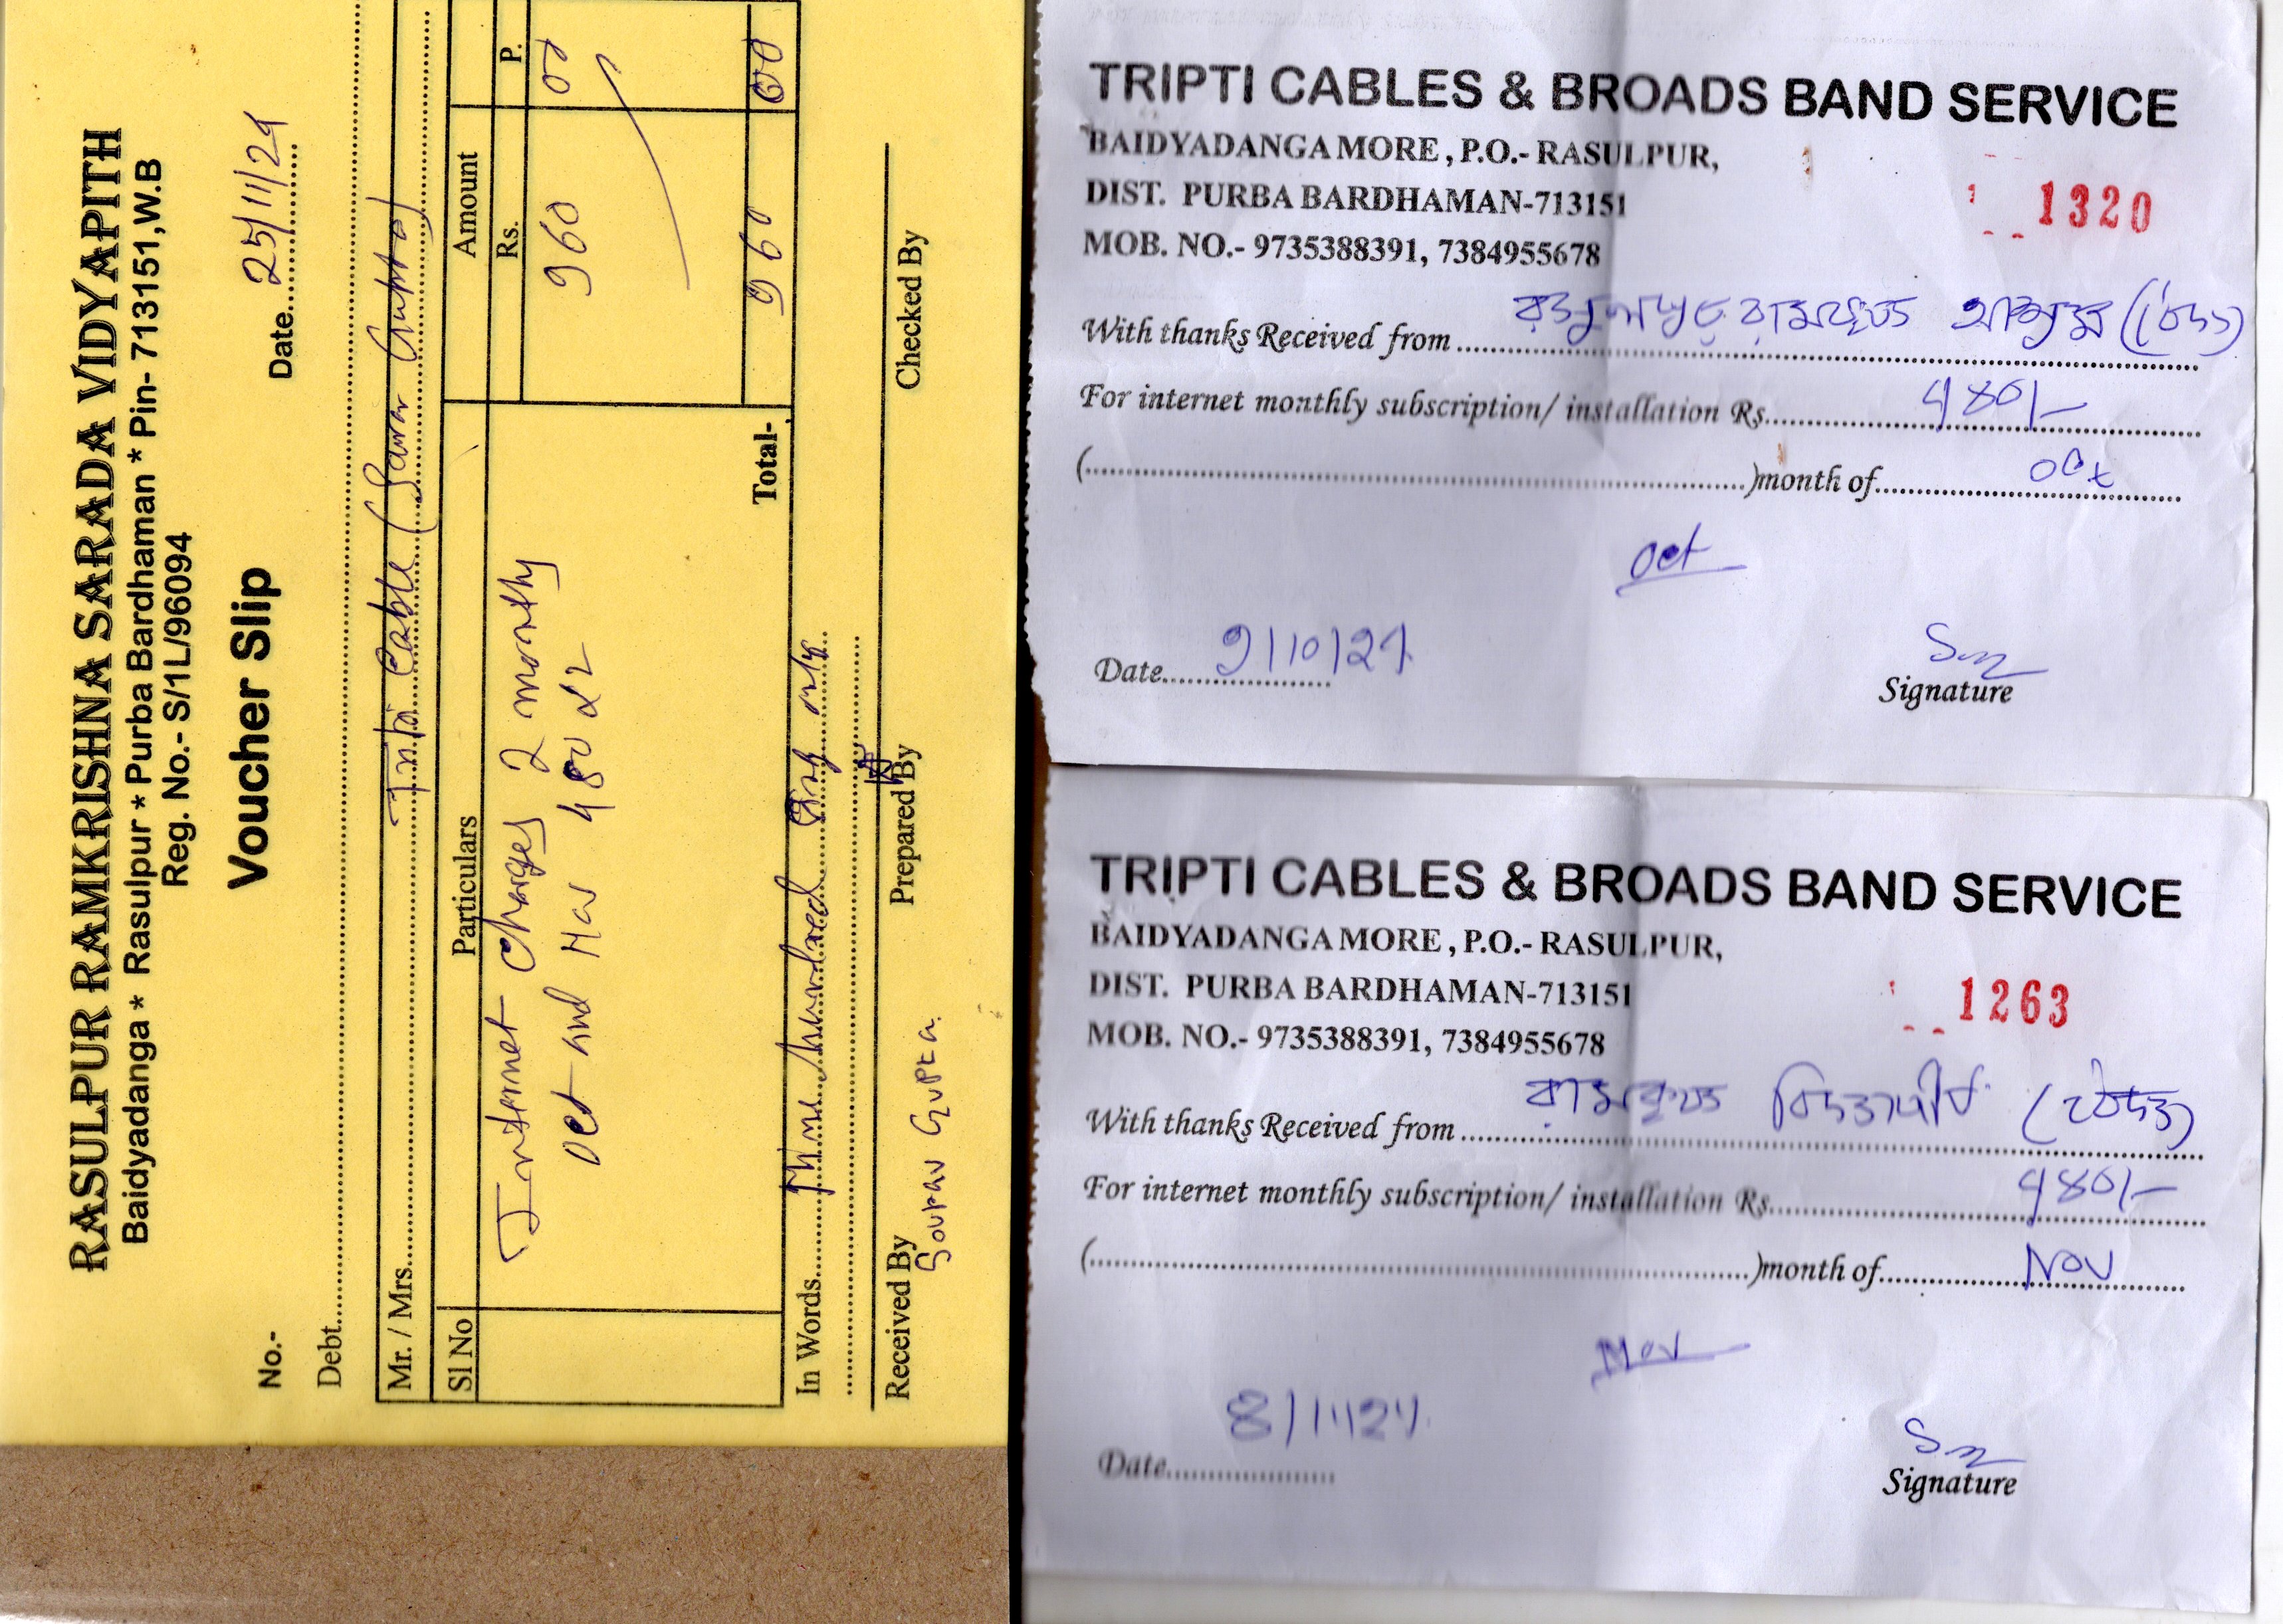 RASULPUR RAMKRISHNA SARADA VIDYAPITH
Baidyadanga * Rasulpur * Purba Bardhaman * Pin- 713151,W.B
Reg. No.- S/1L/96094
Voucher Slip
No.- Date 25/11/24
Debt
Mr. / Mrs. Cable ( Gupta)
Sl No Particulars Amount
Rs. P.
Internet Charges 2 monthly 960 00
Oct and Nov 480 x 2
Total- 960 00
In Words Nine hundred Sixty only
Received By Prepared By Checked By
Sourav Gupta
TRIPTI CABLES & BROADS BAND SERVICE
BAIDYADANGA MORE, P.O.- RASULPUR,
DIST. PURBA BARDHAMAN-713151
1320
MOB. NO.- 9735388391, 7384955678
With thanks Received from রসুলপুর রামকৃষ্ণ
For internet monthly subscription/ installation Rs. 480/-
( )month of Oct
Oct
Date 9/10/24
Signature
TRIPTI CABLES & BROADS BAND SERVICE
BAIDYADANGA MORE, P.O.- RASULPUR,
DIST. PURBA BARDHAMAN-713151
1263
MOB. NO.- 9735388391, 7384955678
With thanks Received from রামকৃষ্ণ বিদ্যাপীঠ
For internet monthly subscription/ installation Rs. 480/-
( )month of Nov
Nov
Date 8/11/24
Signature